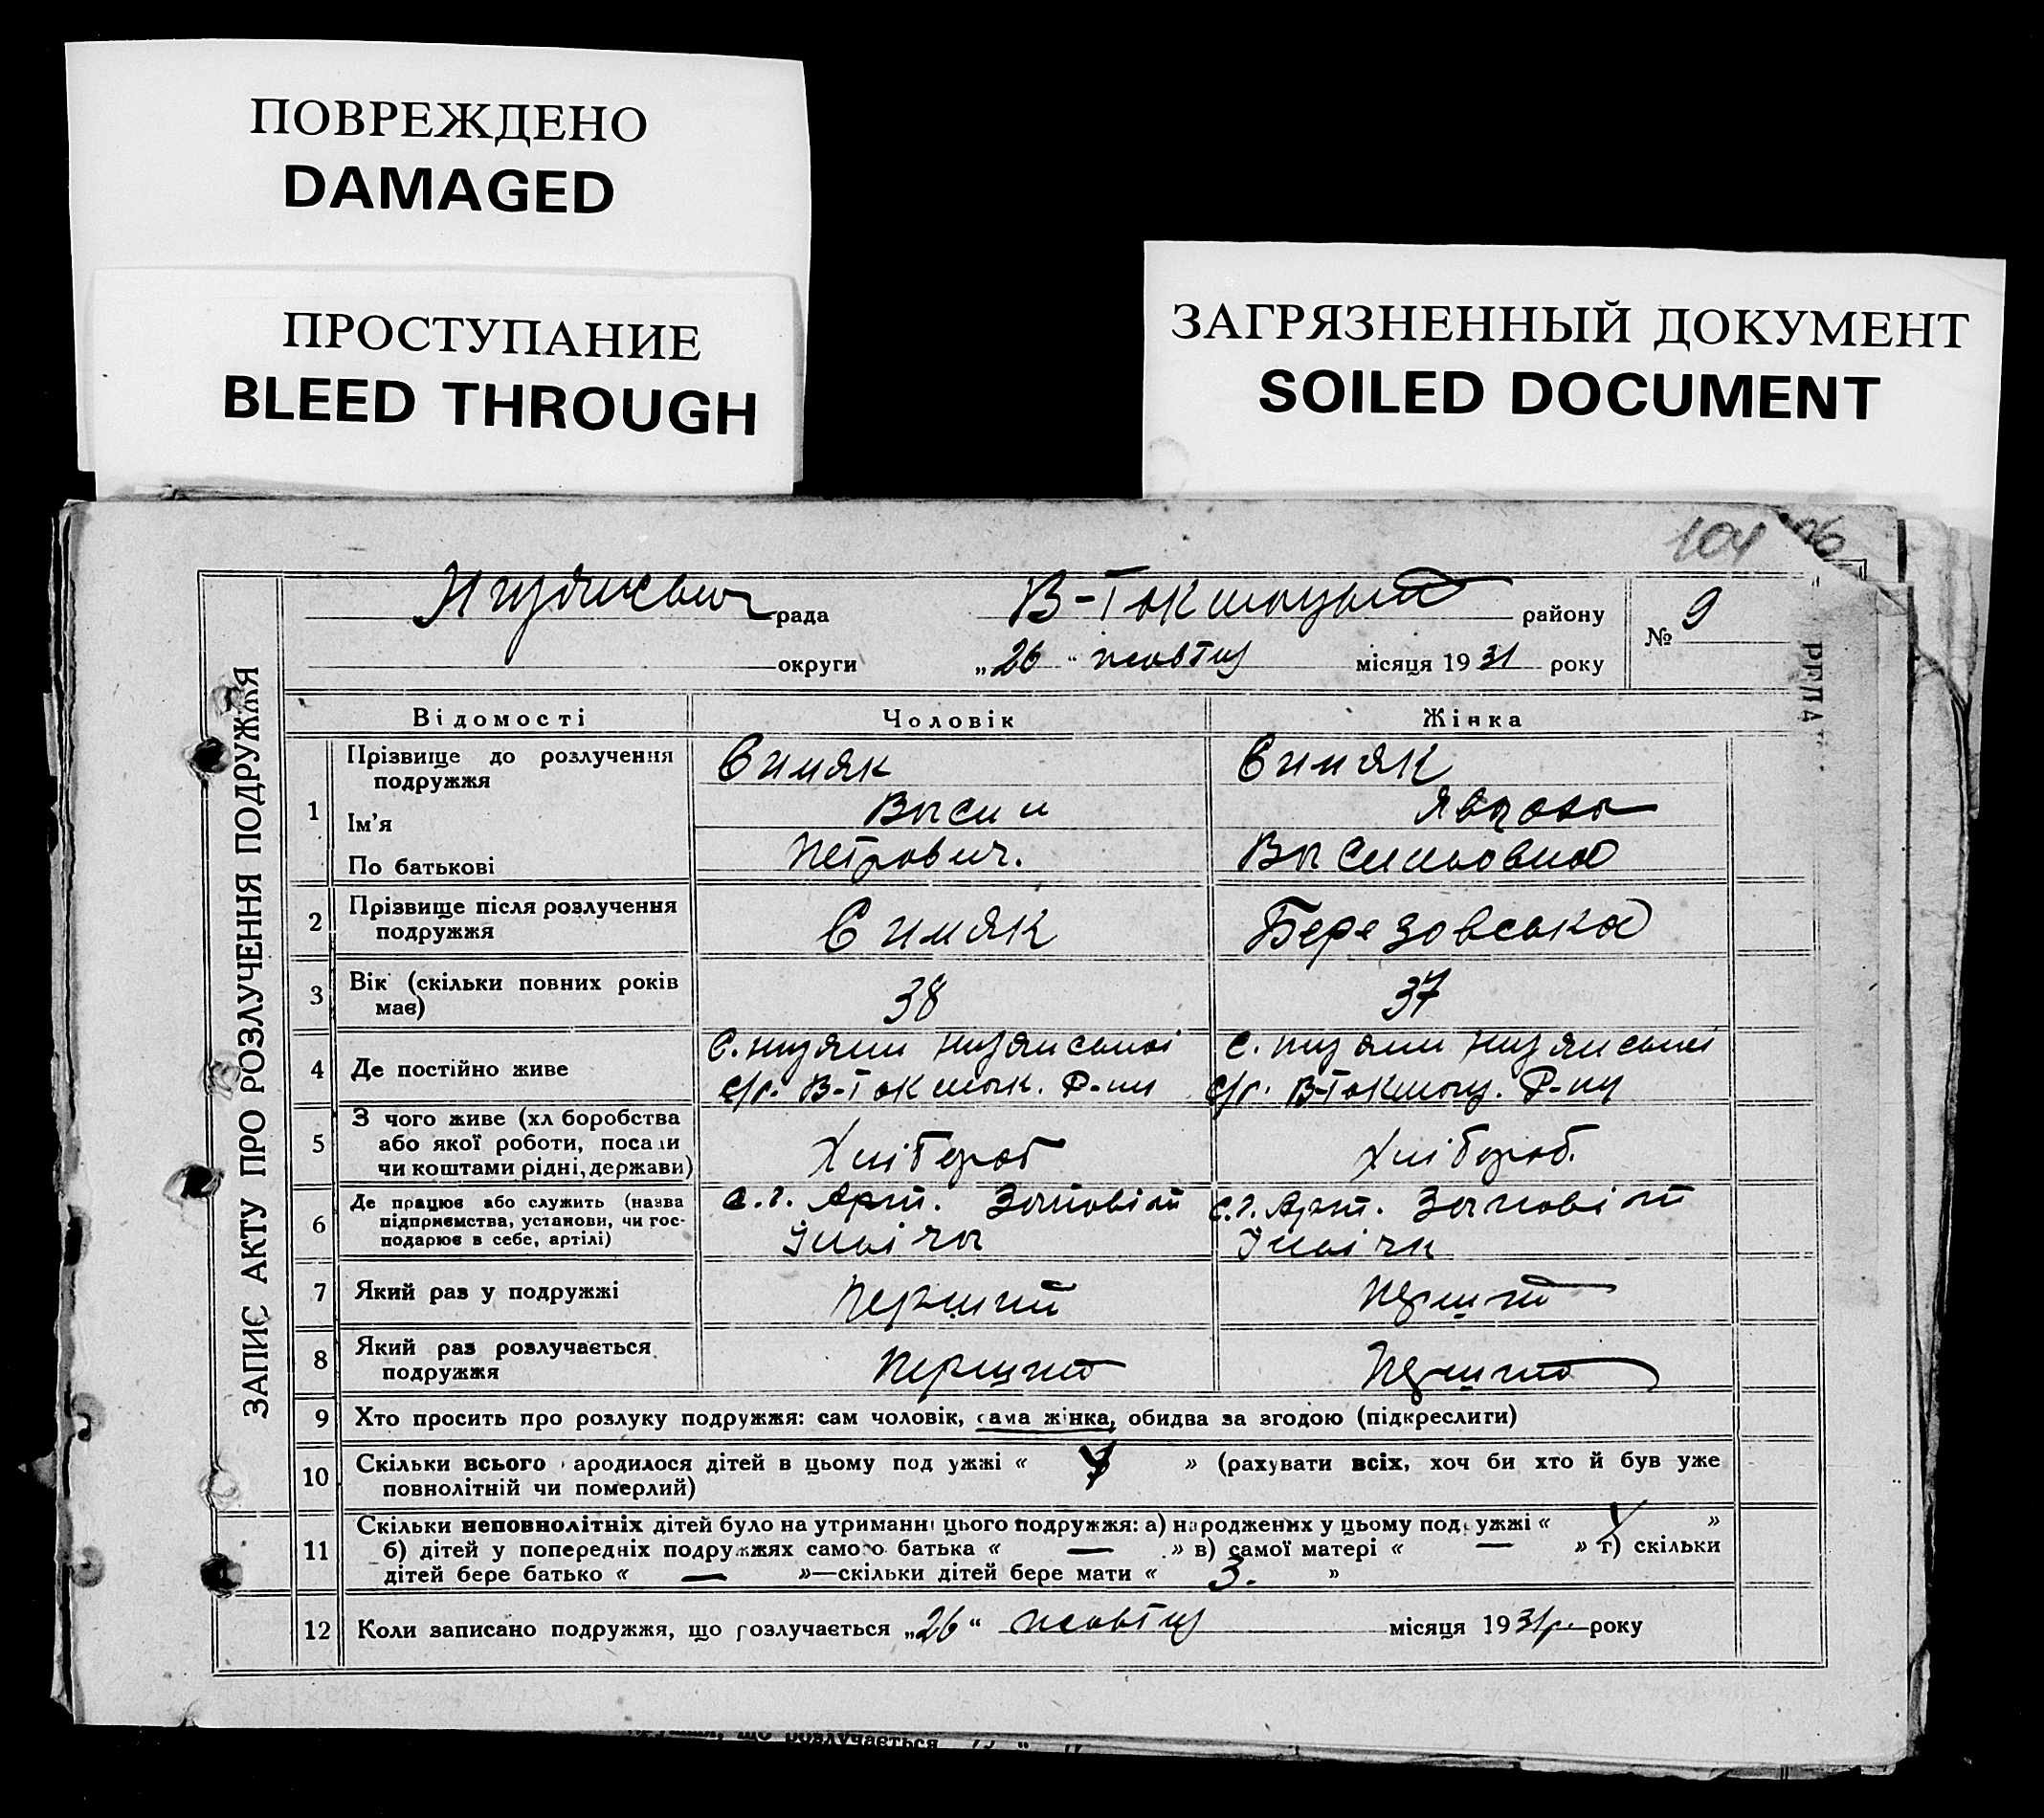 ПОВРЕЖДЕНО
DAMAGED
ПРОСТУПАНИЕ
BLEED THROUGH
ЗАГРЯЗНЕННЫЙ ДОКУМЕНТ
SOILED DOCUMENT
104
ЗАПИС АКТУ ПРО РОЗЛУЧЕННЯ ПОДРУЖЖЯ
рада В-Токмацький району № 9
округи „26“ жовтня місяця 1931 року
Відомості Чоловік Жінка
1 Прізвище до розлучення подружжя Симяк Симяк
Ім'я Васил
По батькові Петрович. Васильовна
2 Прізвище після розлучення подружжя Симяк Березовська
3 Вік (скільки повних років має) 38 37
4 Де постійно живе
с/р. В-Токмак. Р-ну с/р. В-Токмац. Р-ну
5 З чого живе (хл боробства або якої роботи, посади чи коштами рідні, держави) Хлібороб Хлібороб.
6 Де працює або служить (назва підприємства, установи, чи господарює в себе, артілі) с.г. Арт. Заповіт с.г. Арт. Заповіт
Ільіча Ільіча
7 Який раз у подружжі Перший Перший
8 Який раз розлучається подружжя Перший Перший
9 Хто просить про розлуку подружжя: сам чоловік, сама жінка, обидва за згодою (підкреслити)
10 Скільки всього ародилося дітей в цьому под ужжі « » (рахувати всіх, хоч би хто й був уже
повнолітній чи померлий)
11 Скільки неповнолітніх дітей було на утриманні цього подружжя: а) народжених у цьому подружжі « »
б) дітей у попередніх подружжях самого батька « — » в) самої матері « — » г) скільки
дітей бере батько « — »—скільки дітей бере мати « 3. »
12 Коли записано подружжя, що розлучається „26“ жовтня місяця 1931р. року